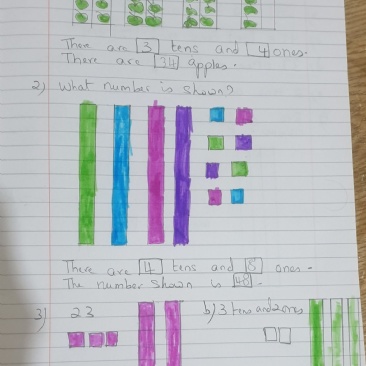 There are 3 tens and 4 ones.
There are 34 apples.
2) What number is shown?
There are 4 tens and 8 ones.
The number shown is 48.
3) 23
b) 3 tens and 2 ones